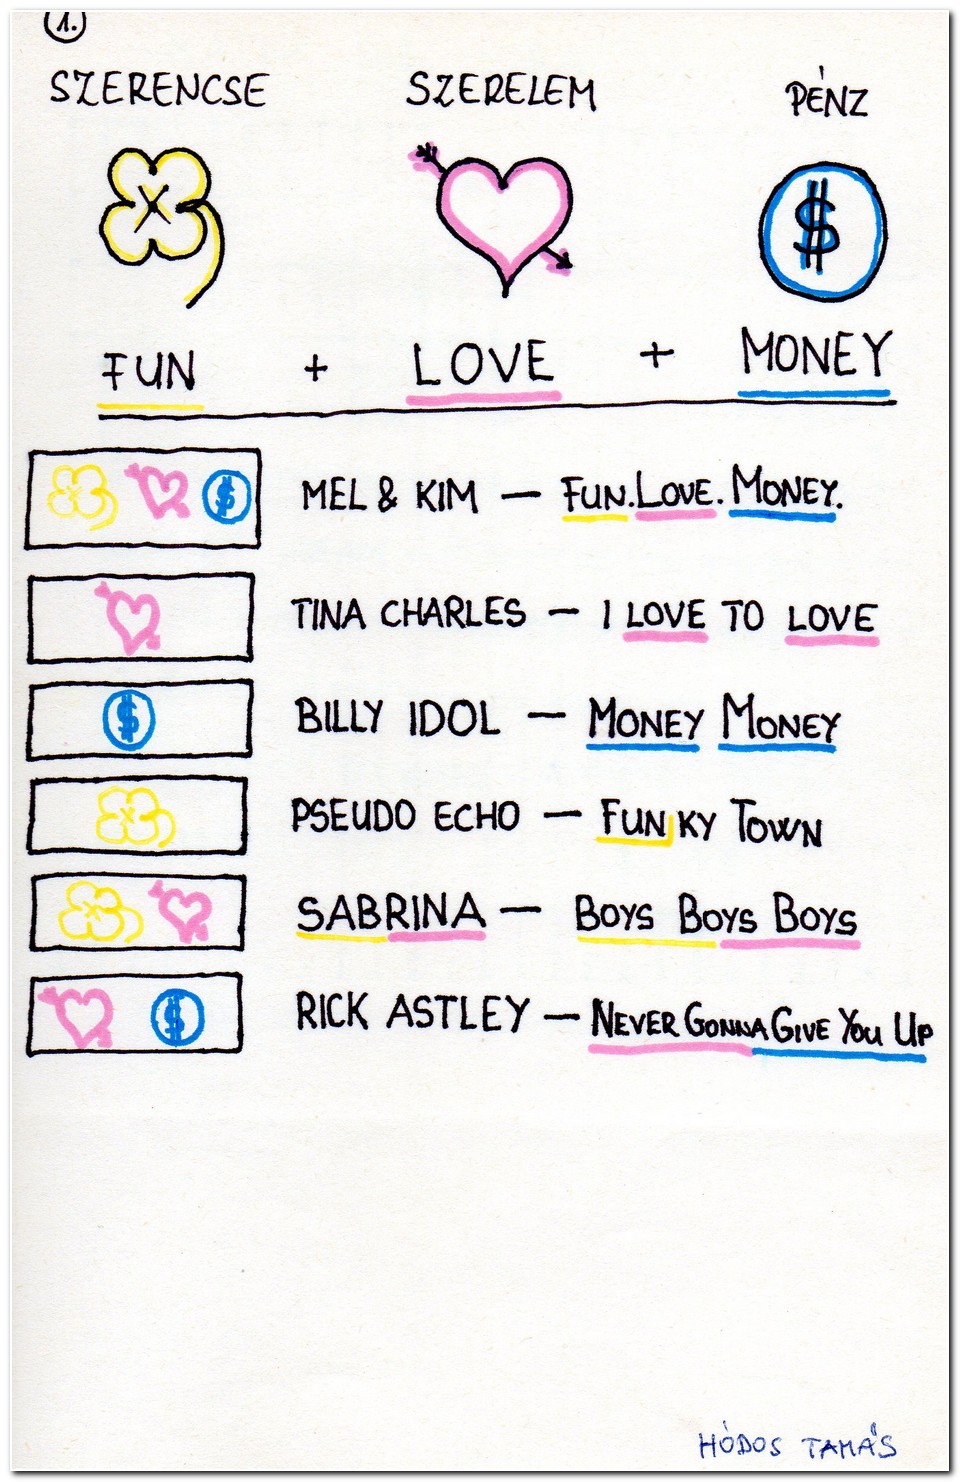 1.
SZERENCSE SZERELEM PÉNZ
$
FUN + LOVE + MONEY
$ MEL & KIM — FUN. LOVE. MONEY.
TINA CHARLES — I LOVE TO LOVE
$ BILLY IDOL — MONEY MONEY
PSEUDO ECHO — FUNKY TOWN
SABRINA — BOYS BOYS BOYS
$ RICK ASTLEY — NEVER GONNA GIVE YOU UP
HÓDOS TAMÁS